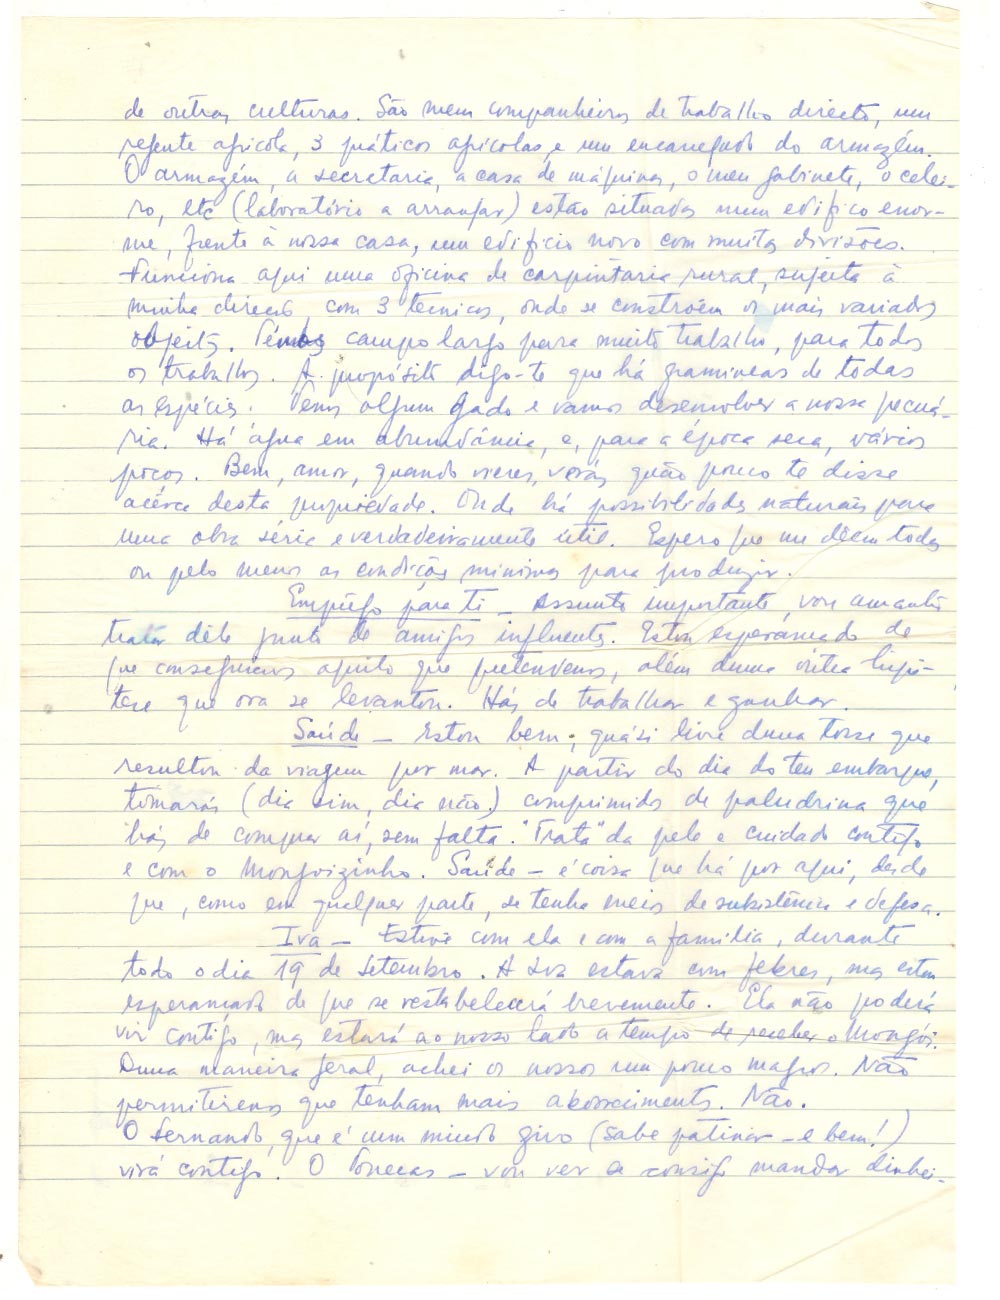 de outras culturas. São meus companheiros de trabalho directo, um
regente agrícola, 3 práticos agrícolas e um encarregado do armazém.
O armazém, a secretaria, a casa de máquinas, o meu gabinete, o celei-
ro, etc (laboratório a arranjar) estão situados num edifico enor-
me, frente à nossa casa, um edifício novo com muitas divisões.
Funciona aqui uma oficina de carpintaria rural, sujeita à
minha direcção, com 3 técnicos, onde se constroem os mais variados
objectos. Temos campo largo para muito trabalho, para todos
os trabalhos. A propósito digo-te que há gramíneas de todas
as espécies. Temos algum gado e vamos desenvolver a nossa pecuá-
ria. Há água em abundância, e, para a época seca, vários
poços. Bem, amor, quando vieres, verás quão pouco te disse
acêrca desta propriedade. Onde há possibilidades naturais para
uma obra séria e verdadeiramente útil. Espero que me dêem todas
ou pelo menos as condições mínimas para produzir.
Emprêgo para ti - Assunto importante, vou amanhã
tratar dêle junto de amigos influentes. Estou esperançado de
que conseguiremos aquilo que pretendemos, além duma outra hipó-
tese que ora se levantou. Hás de trabalhar e ganhar.
Saúde - Estou bem, quási livre duma tosse que
resultou da viagem por mar. A partir do dia do teu embarque,
tomarás (dia sim, dia não) comprimidos de paludrina que
hás de comprar aí, sem falta. "Trata" da pele e cuidado contigo
e com o Mongoizinho. Saúde - é coisa que há por aqui, desde
que, como em qualquer parte, se tenha meios de subsistência e defesa.
Iva - Estive com ela e com a família, durante
todo o dia 19 de Setembro. A Iva estava com febres, mas estou
esperançado de que se restabelecerá brevemente. Ela não poderá
vir contigo, mas estará ao nosso lado a tempo de receber o Mongói.
Duma maneira geral, achei os nossos um pouco magros. Não
permitiremos que tenham mais aborrecimentos. Não.
O Fernando, que é um miudo giro (sabe patinar - e bem!)
virá contigo. O Tonecas - vou ver se consigo mandar dinhei-